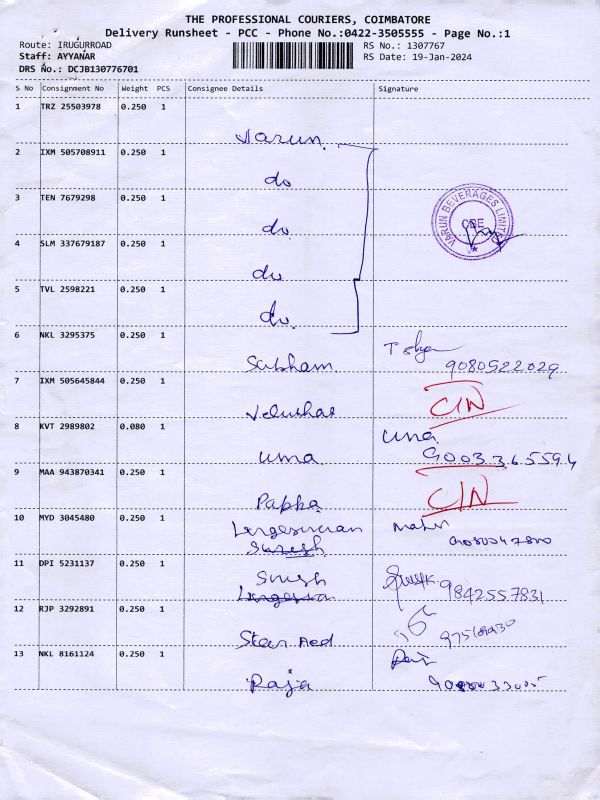 THE PROFESSIONAL COURIERS, COIMBATORE
Delivery Runsheet - PCC - Phone No.:0422-3505555 - Page No.:1
Route: IRUGURROAD RS No.: 1307767
Staff: AYYANAR RS Date: 19-Jan-2024
DRS No.: DCJB130776701
S No Consignment No Weight PCS Consignee Details Signature
1 TRZ 25503978 0.250 1
Varun
2 IXM 505708911 0.250 1
do
3 TEN 7679298 0.250 1
VARUN BEVERAGES LIMITED
CBE
do
4 SLM 337679187 0.250 1
do
5 TVL 2598221 0.250 1
do
6 NKL 3295375 0.250 1
Subham 9080522029
7 IXM 505645844 0.250 1
CIN
8 KVT 2989802 0.080 1
Uma
uma 9003365594
9 MAA 943870341 0.250 1
CIN
Pappa
10 MYD 3045480 0.250 1
Suresh
11 DPI 5231137 0.250 1
Suresh 9842557831
12 RJP 3292891 0.250 1
Star Aed
13 NKL 8161124 0.250 1
Raja